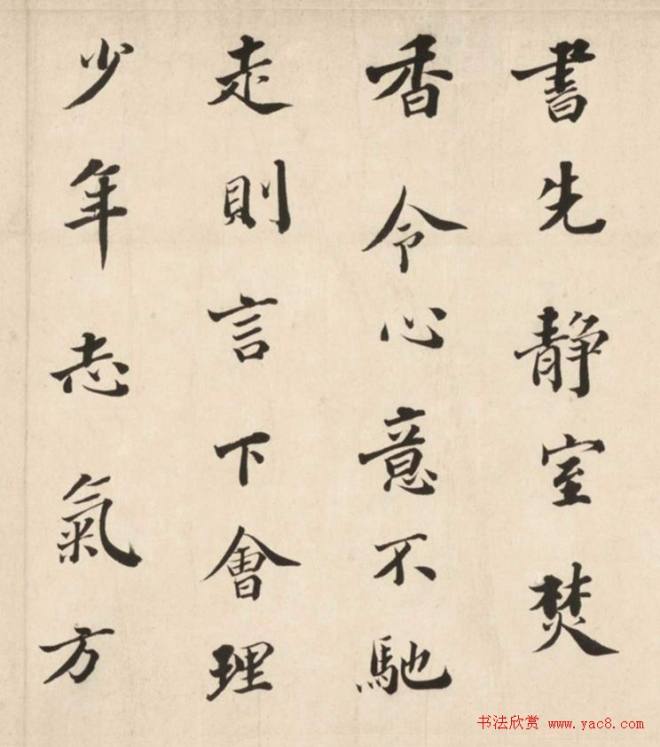 書先靜室焚
香令心意不馳
走則言下會理
少年志氣方
书法欣赏 www.yac8.com